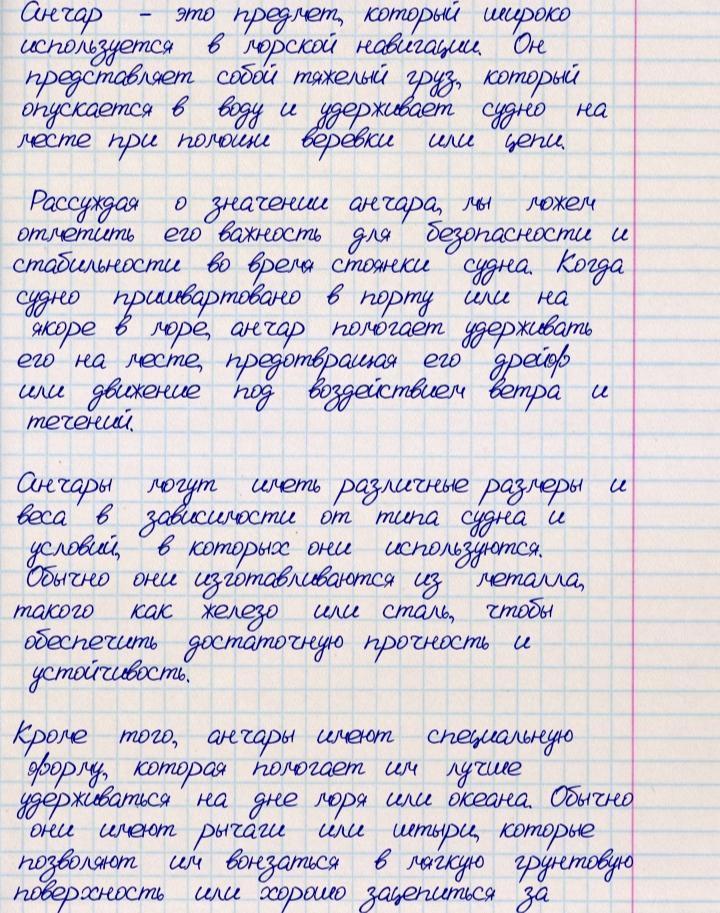 Анчар - это предмет, который широко
используется в морской навигации. Он
представляет собой тяжелый груз, который
опускается в воду и удерживает судно на
месте при помощи веревки или цепи.
Рассуждая о значении анчара, мы можем
отметить его важность для безопасности и
стабильности во время стоянки судна. Когда
судно пришвартовано в порту или на
якоре в море, анчар помогает удерживать
его на месте, предотвращая его дрейф
или движение под воздействием ветра и
течений.
Анчары могут иметь различные размеры и
веса в зависимости от типа судна и
условий, в которых они используются.
Обычно они изготавливаются из металла,
такого как железо или сталь, чтобы
обеспечить достаточную прочность и
устойчивость.
Кроме того, анчары имеют специальную
форму, которая помогает им лучше
удерживаться на дне моря или океана. Обычно
они имеют рычаги или штыри, которые
позволяют им вонзаться в мягкую грунтовую
поверхность или хорошо зацепиться за